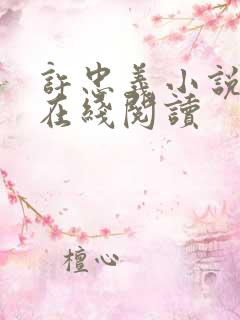 許忠義小說
在綫閱讀
檀心